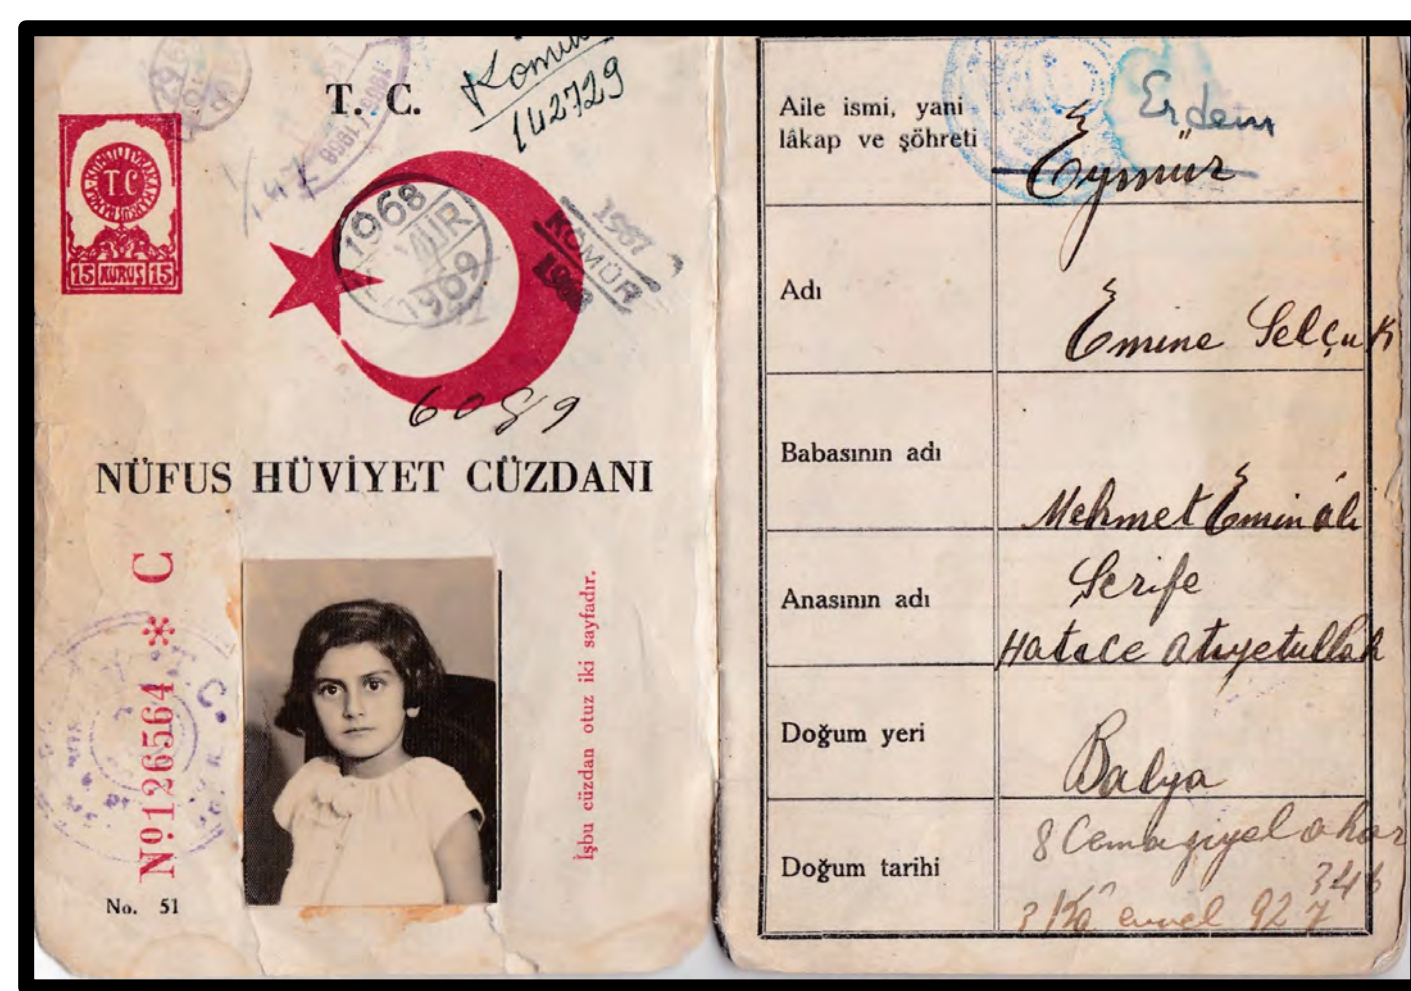 T. C.
Kömür
142729
T C
15 KURUŞ 15
1968
1969
1967
KÖMÜR
1968
6089
NÜFUS HÜVİYET CÜZDANI
No 126564 * C
İşbu cüzdan otuz iki sayfadır.
No. 51
Aile ismi, yani
lâkap ve şöhreti
Erdem
Eymür
Adı
Emine Selçuk
Babasının adı
Mehmet Emin âli
Anasının adı
Şerife
Hatice Atiyetullah
Doğum yeri
Balya
Doğum tarihi
8 Cemaziyel ahar
346
3 Kâ evvel 927